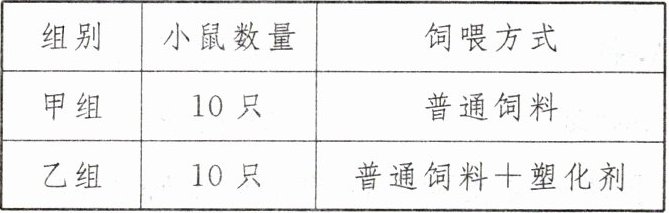 组别 小鼠数量 饲喂方式
甲组 10只 普通饲料
乙组 10只 普通饲料+塑化剂